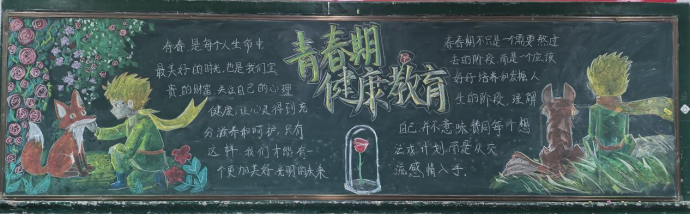 青春期
健康教育
青春是每个人生命中
最美好的时光,也是我们宝
贵的财富,关注自己的心理
健康,让心灵得到充
分滋养和呵护,只有
这样,我们才能有一
个更加美好光明的未来
青春期不只是一个需要熬过
去的阶段,而是一个应该
好好培养和发掘人
生的阶段,理解
自己,并不意味赞同每个想
法或计划,而是从交
流感情入手.